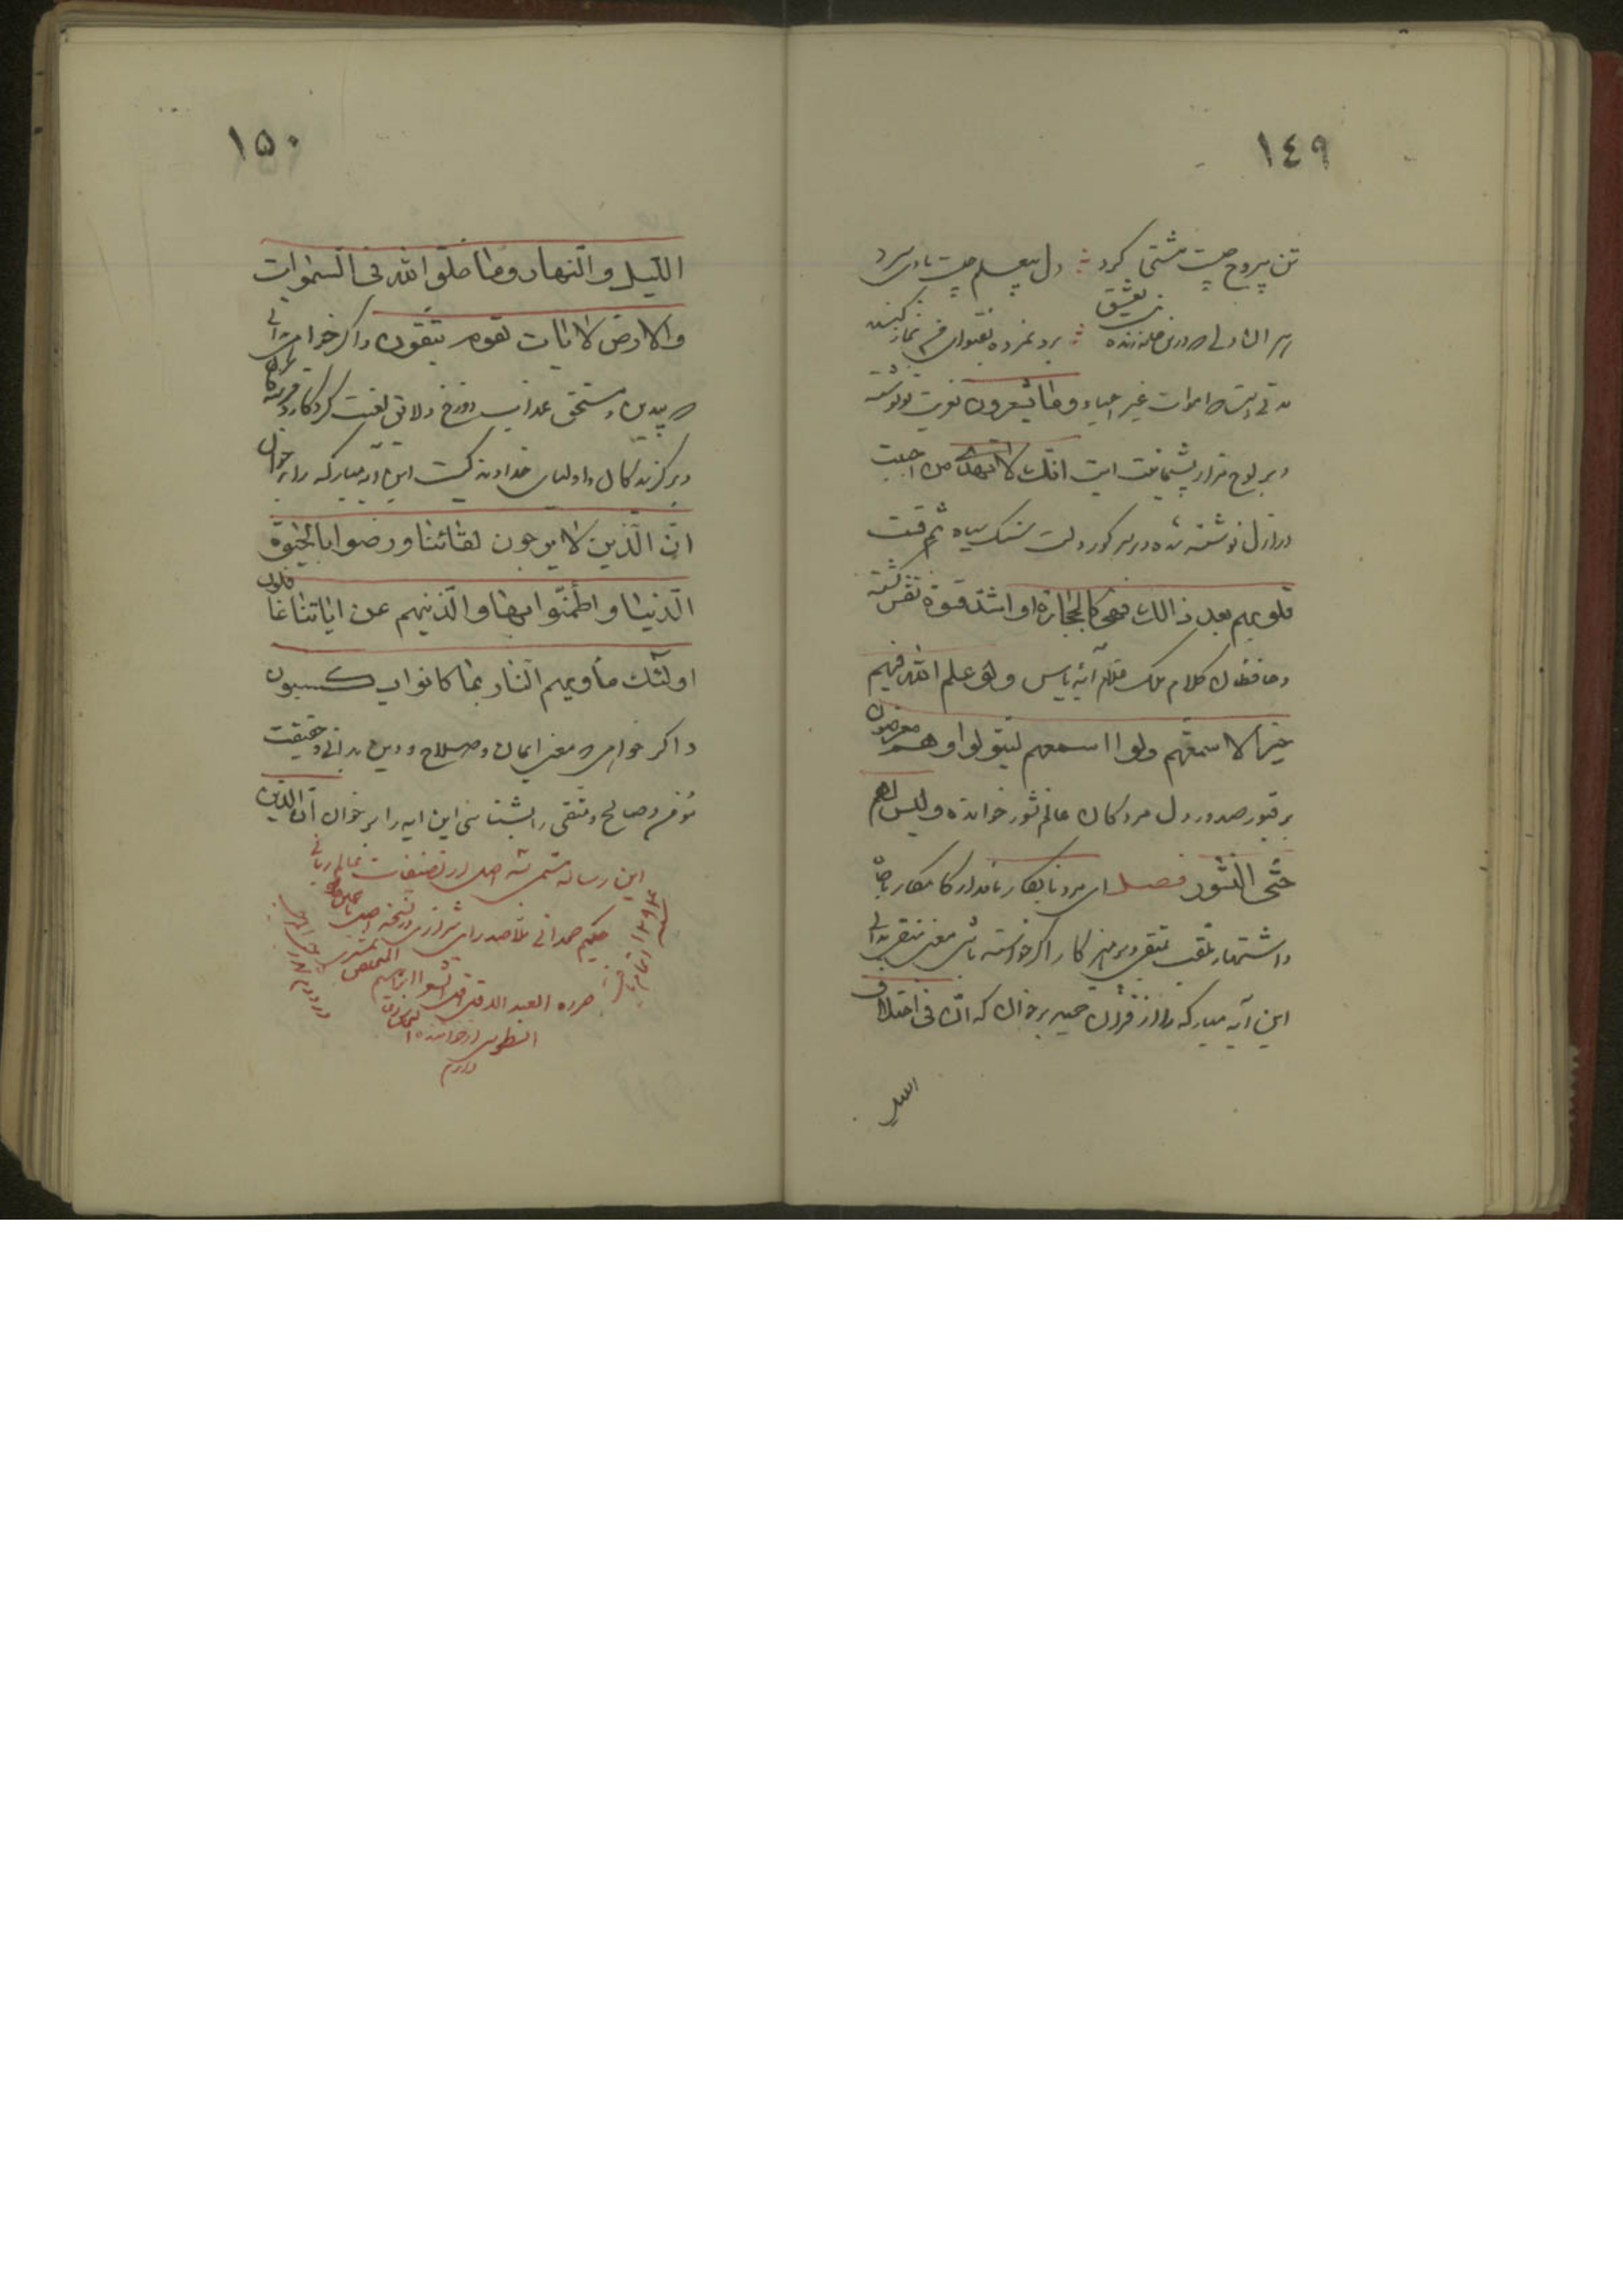 ١٤٩
تن بیروح چیست مشتی گرد : دل بیعلم چیست بادی سرد
هر آن دلی که درین حلقه زنده نیست بعشق : برو نمرده بفتوای من نماز کنید
مدتی است که اموات غیر احیاء وما یشعرون تعزیت تو نوشته
و بر لوح مزار پیشانیت آیت انک لا تهدی من احببت
در ازل نوشته شده و بر سر گور دلت سنگ سیاه ثم قست
قلوبهم بعد ذالک فهی کالحجارة او اشد قسوة نقش گشته
و حافظان کلام ملک علام آیهٔ یاس ولو علم الله فیهم
خیرا لاسمعهم ولو اسمعهم لتولوا وهم معرضون
بر قبور صدور دل مردگان عالم شور خوانده ولیس لهم
حتی النشور فصل ای مرد نابکار نامدار کامکار با
و اشتهار بلقب متقی و پرهیزکار اگر خواسته باشی معنی متقی بدانی
این آیه مبارکه را از قرآن مجید برخوان که ان فی اختلاف
اللیل
١٥٠
اللیل والنهار وما خلق الله فی السموات
والارض لایات لقوم یتقون و اگر خواهی بدانی
که بیدین و مستحق عذاب دوزخ و لایق لعنت کردگار و فرشتگان
و برگزیدگان و اولیای خداوند کیست این آیه مبارکه را برخوان
ان الذین لا یرجون لقائنا ورضوا بالحیوة
الدنیا واطمئنوا بها والذینهم عن ایاتنا غافلون
اولئک ماویهم النار بما کانوا یکسبون
و اگر خواهی که معنی ایمان و صلاح و دین بدانی و حقیقت
مؤمن و صالح و متقی را بشناسی این ایه را برخوان ان الذین
این رساله مسمی بسه اصل از تصنیفات عالم ربانی
حکیم صمدانی ملا صدرای شیرازی در نسخه اصل
حرره العبد الاقل